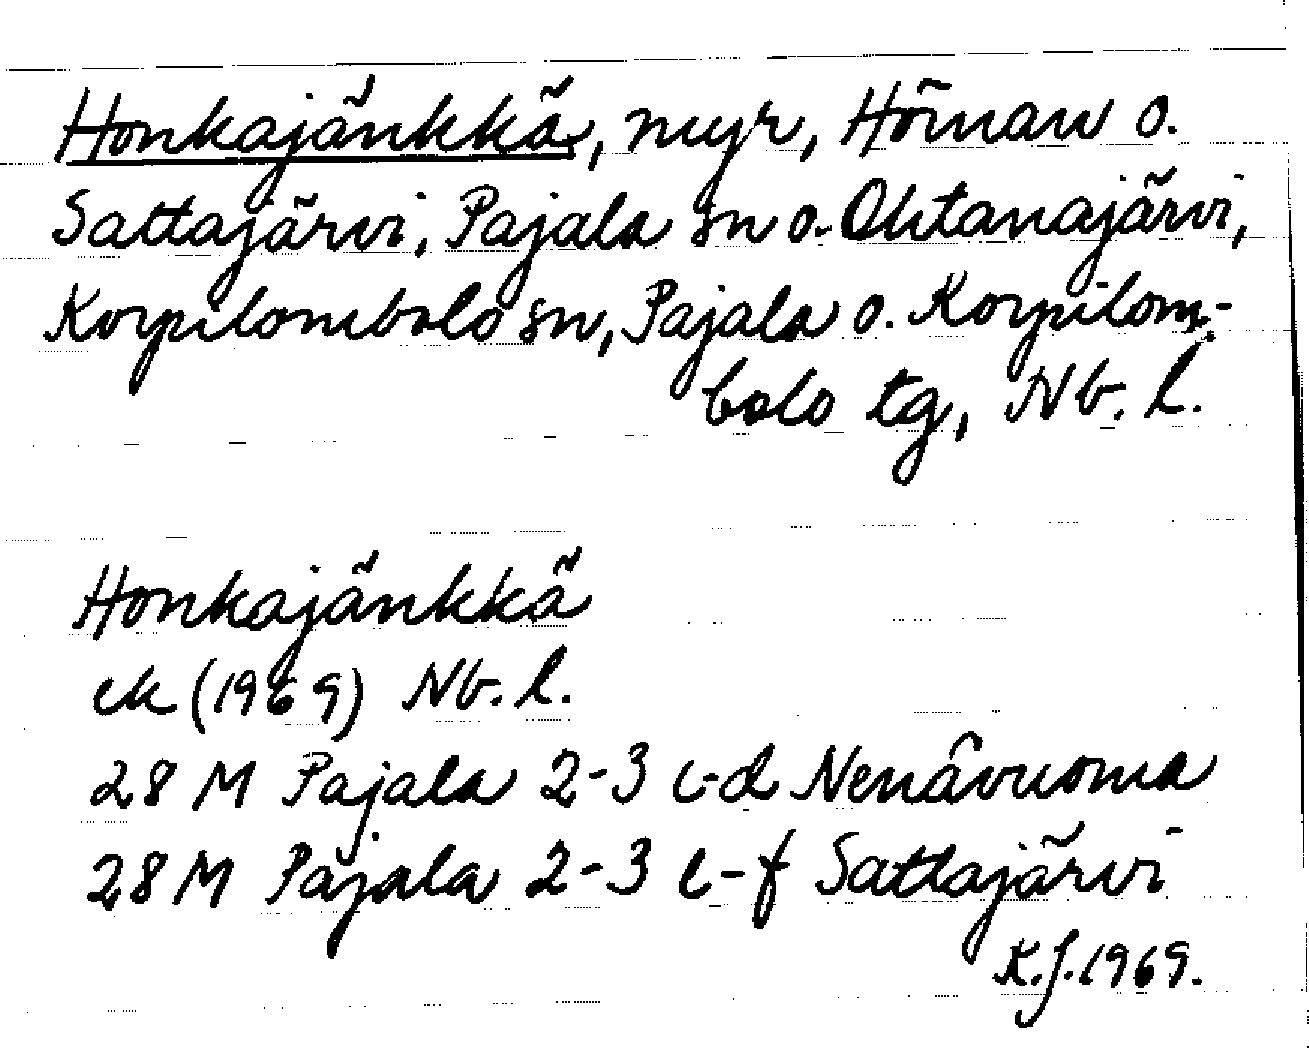 Honkajänkkä, myr, Hörnan o.
Sattajärvi, Pajala sn o. Ohtanajärvi,
Korpilombolo sn, Pajala o. Korpilom-
bolo tg, Nb. l.
Honkajänkkä
ek (1969) Nb. l.
28 M Pajala 2-3 c-d Nenävuoma
28 M Pajala 2-3 e-f Sattajärvi
K.J. 1969.